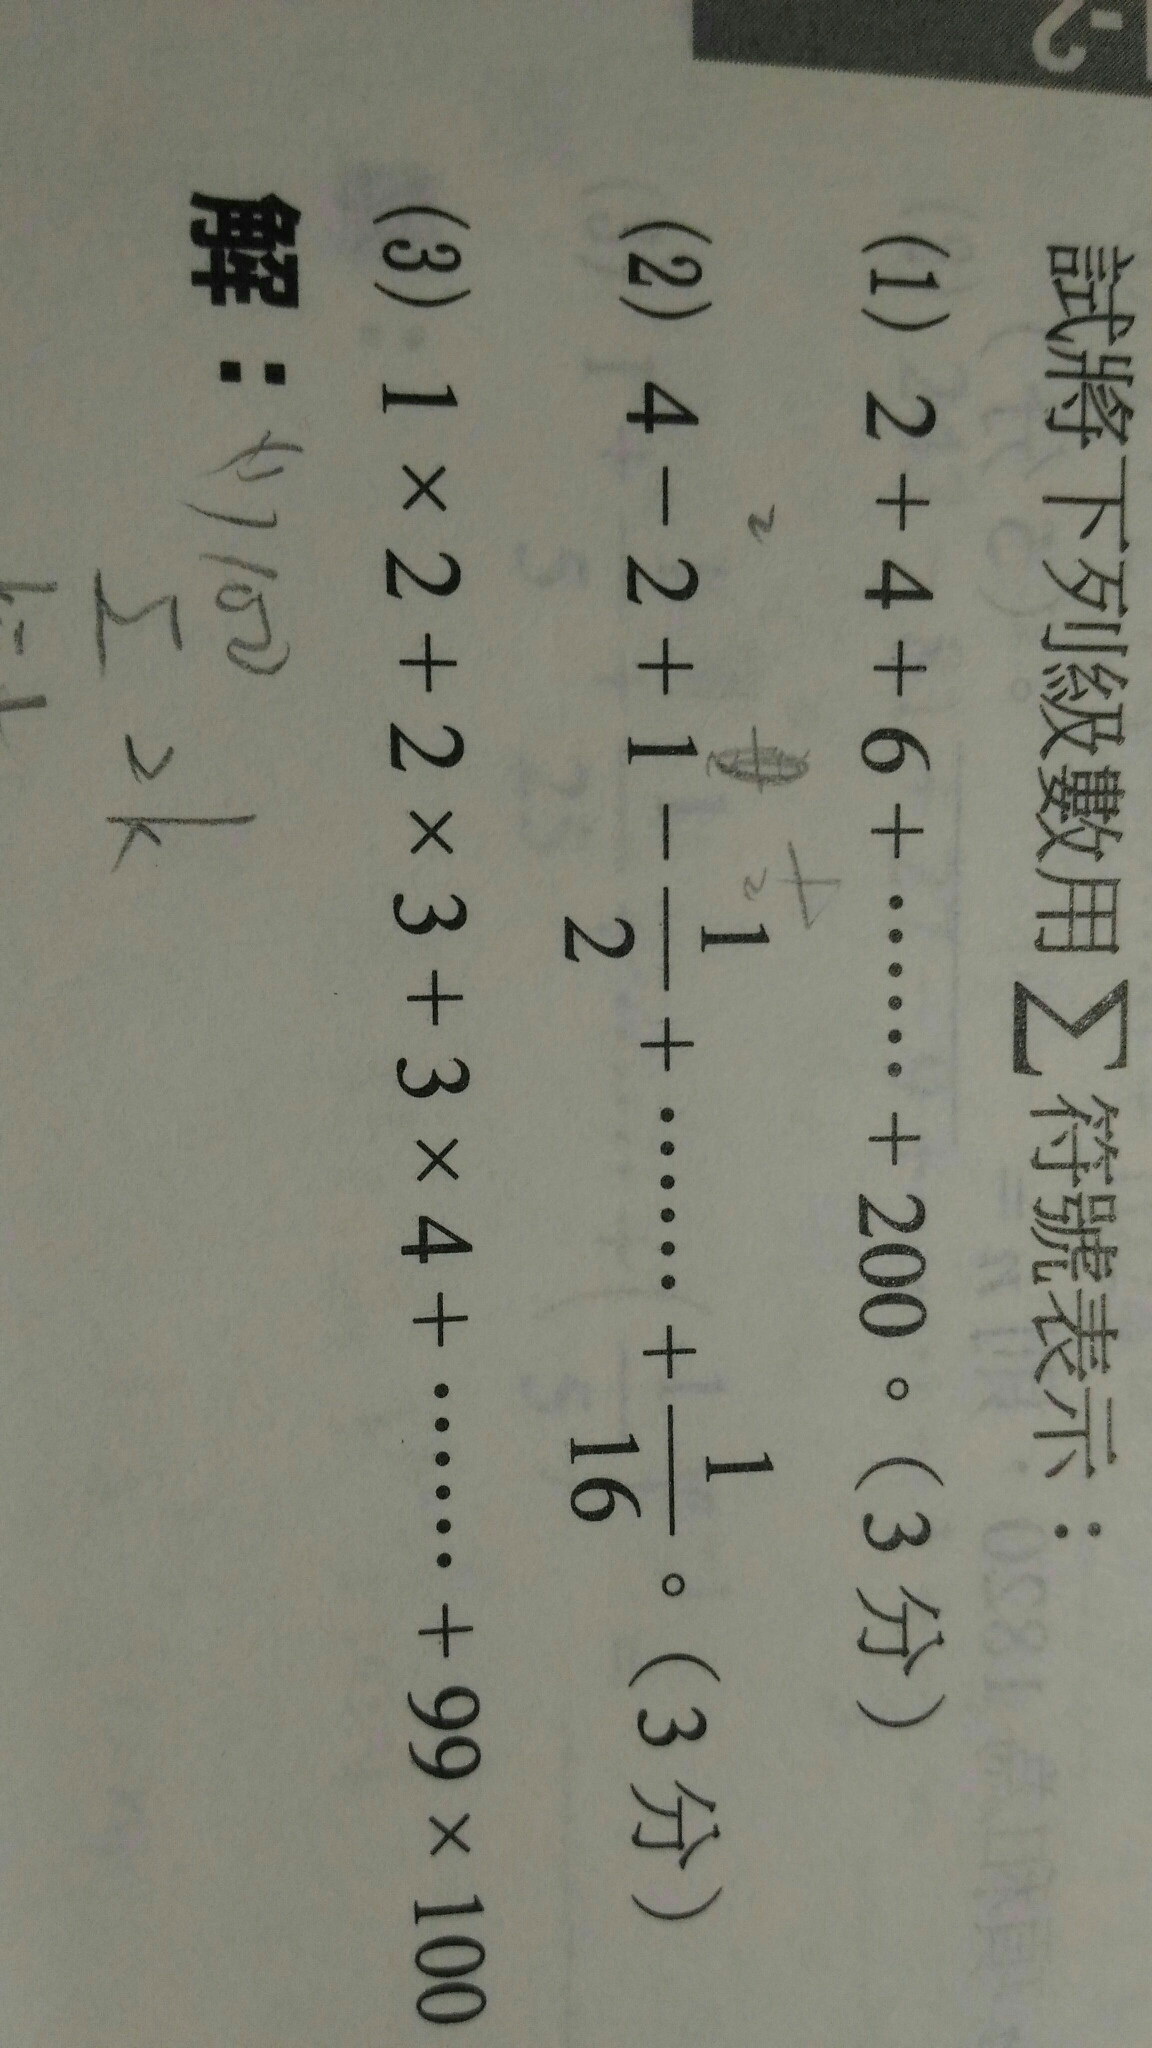 試將下列級數用 Σ 符號表示：
(1) 2 + 4 + 6 + …… + 200。(3 分)
(2) 4 − 2 + 1 − 1/2 + …… + 1/16。(3 分)
(3) 1 × 2 + 2 × 3 + 3 × 4 + …… + 99 × 100
解：(1) 100
Σ 2k
k=1